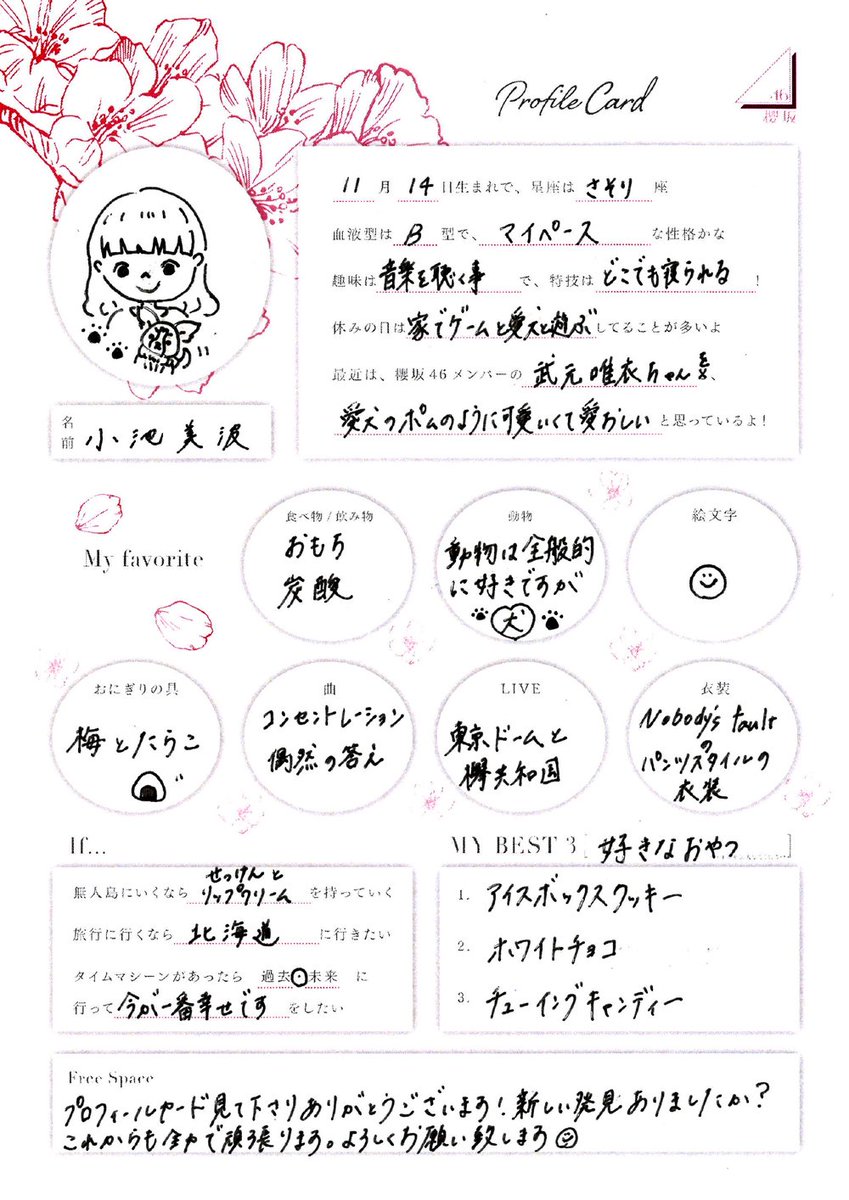 Profile Card
46
櫻坂
11月14日生まれで、星座はさそり座
血液型はB型で、マイペースな性格かな
趣味は音楽を聴く事で、特技はどこでも寝られる!
休みの日は家でゲームと愛犬と遊ぶしてることが多いよ
最近は、櫻坂46メンバーの武元唯衣ちゃんを、
愛犬のポムのように可愛いくて愛おしいと思っているよ!
名前 小池美波
My favorite
食べ物/飲み物
おもち
炭酸
動物
動物は全般的
に好きですが
犬
絵文字
☺
おにぎりの具
梅とたらこ
曲
コンセントレーション
偶然の答え
LIVE
東京ドームと
欅共和国
衣装
Nobody's fault
の
パンツスタイルの
衣装
If...
無人島にいくならせっけんと
リップクリームを持っていく
旅行に行くなら北海道に行きたい
タイムマシーンがあったら 過去・未来 に
行って今が一番幸せですをしたい
MY BEST 3 [好きなおやつ]
1. アイスボックスクッキー
2. ホワイトチョコ
3. チューイングキャンディー
Free Space
プロフィールカード見て下さりありがとうございます!新しい発見ありましたか?
これからも全力で頑張ります。よろしくお願い致します☺